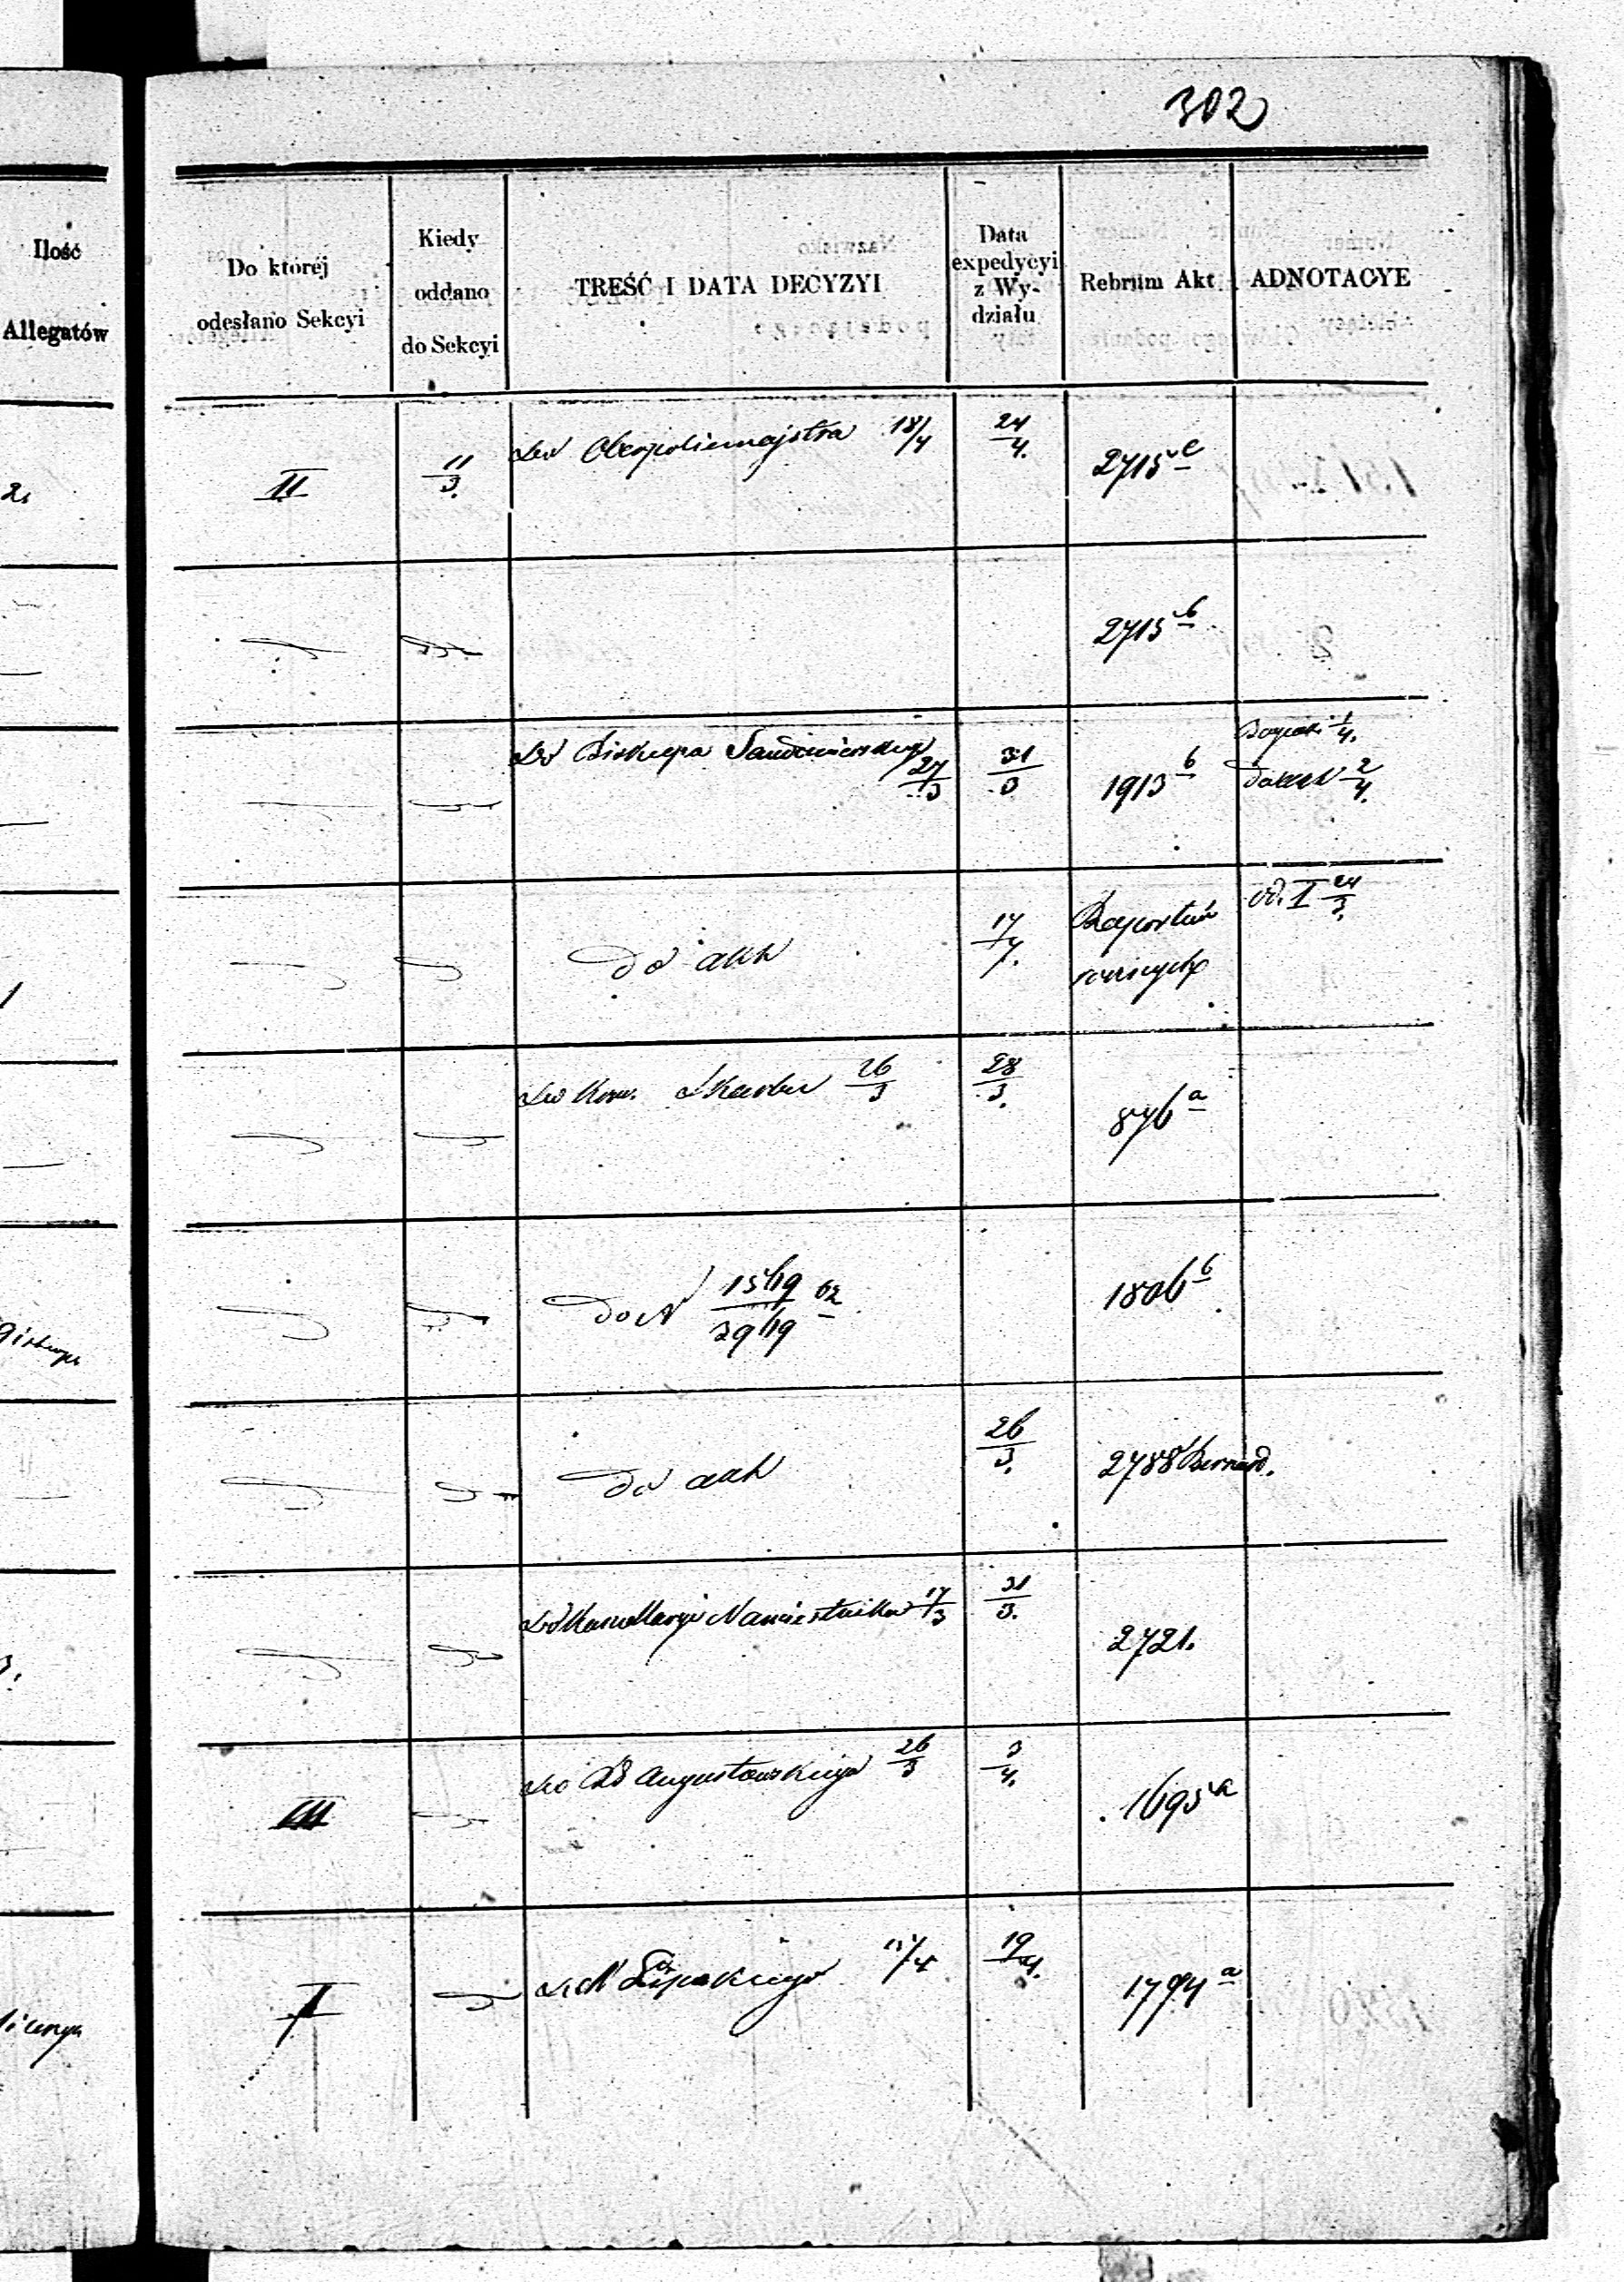 302
Ilość
Allegatów
Do której
odesłano Sekcyi
Kiedy
oddano
do Sekcyi
TREŚĆ I DATA DECYZYI
Data
expedycyi
z Wy-
działu
Rebrum Akt
ADNOTACYE
2. II 11/3. Do Oberpolicmajstra 18/4 24/4. 2715 c
2715 b
Do Biskupa Sandomierskiego 27/3 31/3 1913 b 1/4.
2/4.
1 do akt 17/4. Raportów rocznych od. I 24/3.
Do Kom. Skarbu 26/3 28/3. 876 a
do N 62 1806 b
do akt 26/3. 2788 Bernard.
3. Do Kancellaryi Namiestnika 17/3 31/3. 2721.
III Do Augustowskiego 26/3 3/4. 1695 a
I 19/4. 1794 a